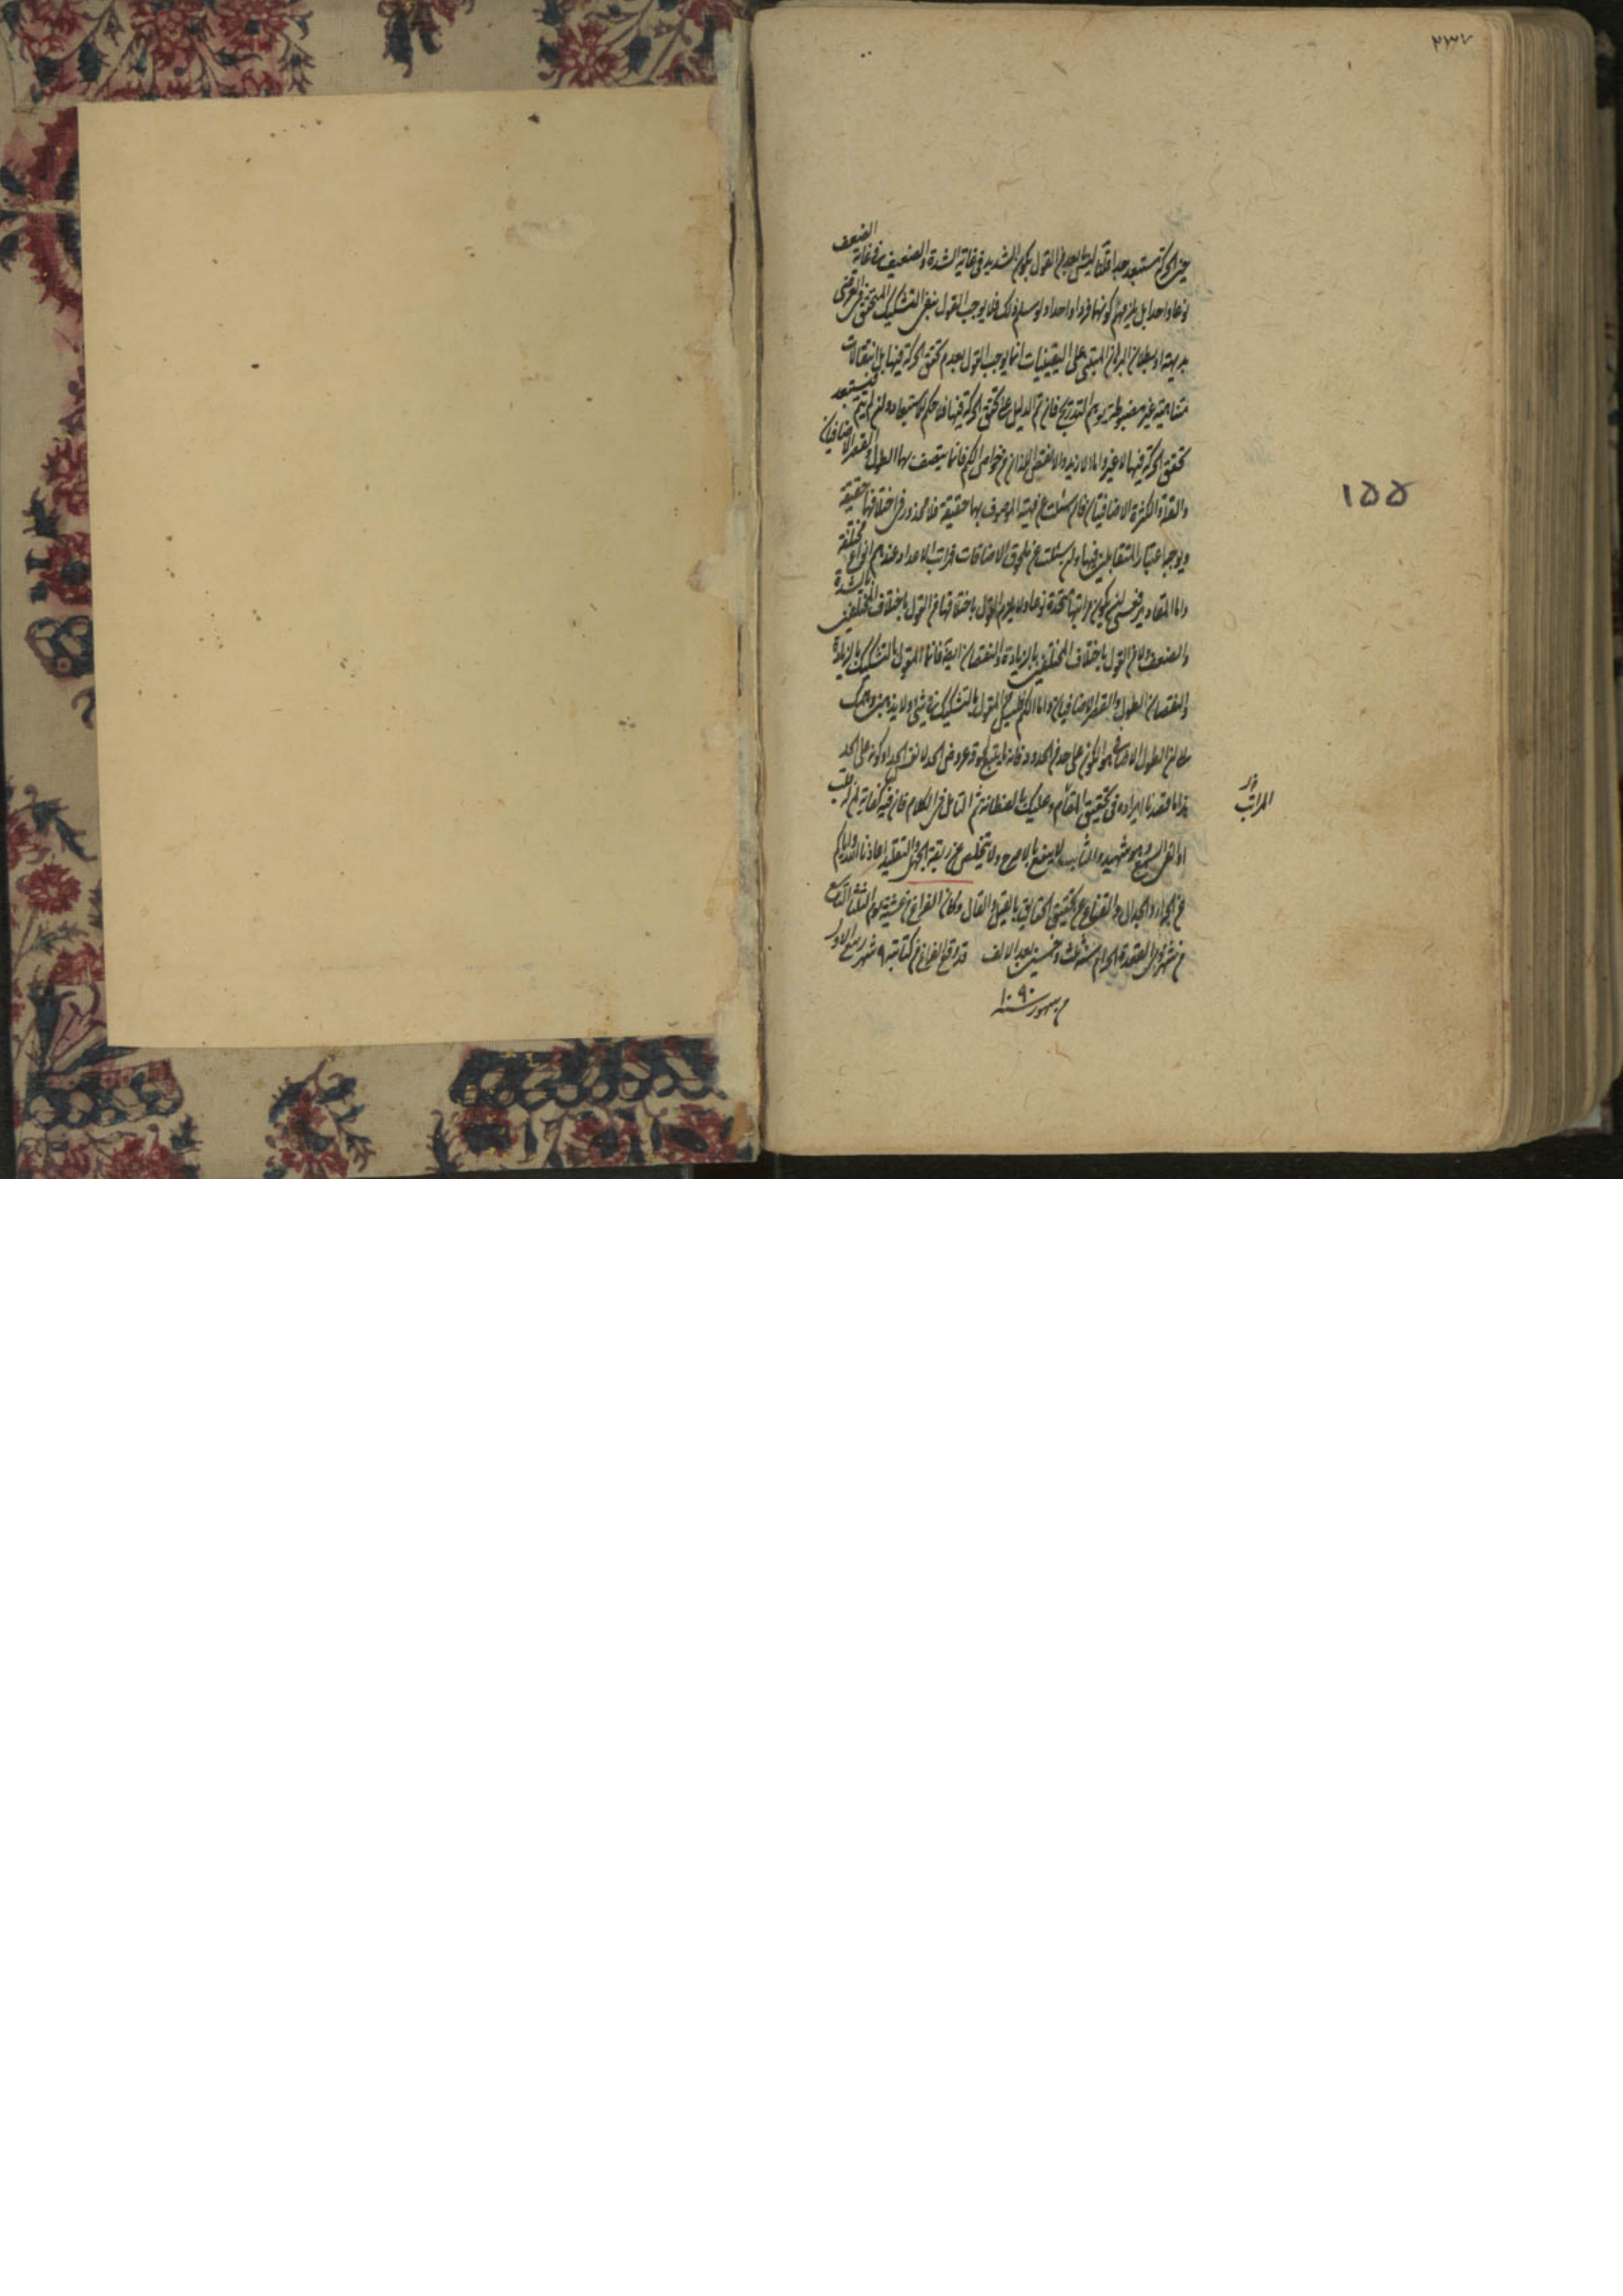 ٢٣٧
حيز الحركة مستبعد جدا قلنا ليس بابعد من القول بكون الشديد في غاية الشدة والضعيف في غاية الضعف
نوعا واحدا بل يلزمهم كونها فردا واحدا ولو سلم ذلك فلا يوجب القول بنفي التشكيك المتحقق في العرضي
بديهة او بطلان البرهان المبتني على اليقينيات انما يوجب القول بعدم تحقق الحركة فيها بل انتقالات
متتالية غير مضبوطة يوهم التدريج فان تم الدليل على تحقق الحركة فيها فلا حكم للاستبعاد وان لم يتم فيستبعد
تحقق الحركة فيها لا غير واما الازيد والانقص اللذان من خواص الكم فانما يتصف بها الطول والقصر الاضافيان
والقلة والكثرة الاضافيتان فان سئلت عن مهية الموصوف بها حقيقة فلا محذور في اختلافها حقيقة
ويوجب اعتبار المتقابلين فيها وان سئلت عن ملحوق الاضافات فمراتب الاعداد عندهم انواع مختلفة
واما المقادير فعسى ان يكون مراتبها متحدة نوعا ولا يلزم القول باختلافها من القول باختلاف المختلفين بالشدة
والضعف ولا من القول باختلاف المختلفين بالزيادة والنقصان ايضا فانما المقول بالتشكيك بالزيادة
والنقصان الطول والقصر الاضافيان واما الكم فليس المقول بالتشكيك في شئ ولا يذهبن وهمك
الى ان الطول الاضافي هو الكون على حد من الحدود فانه تابع لحوقه عروض الحد لا نفس الحد او كونه على الحد
هذا ما قصدنا ايراده في تحقيق المقام وعليك بالفطانة ثم التامل في الكلام فان فيه كفاية لمن له قلب
او القى السمع وهو شهيد والله لا ينفع ولا تخلص عن ربقة الجهل والتقليد اعاذنا الله واياكم
عن المراء والجدال والقناع عن تحقيق الحقايق بالقيل والقال وكان الفراغ من عشية يوم الثلثا التاسع
من شهر ذي القعدة الحرام سنة ثلث وخمسين بعد الالف قد وقع الفراغ من كتابته ٩ شهر ربيع الاول
سنة ١٠٩٠
١٥٥
المراتب